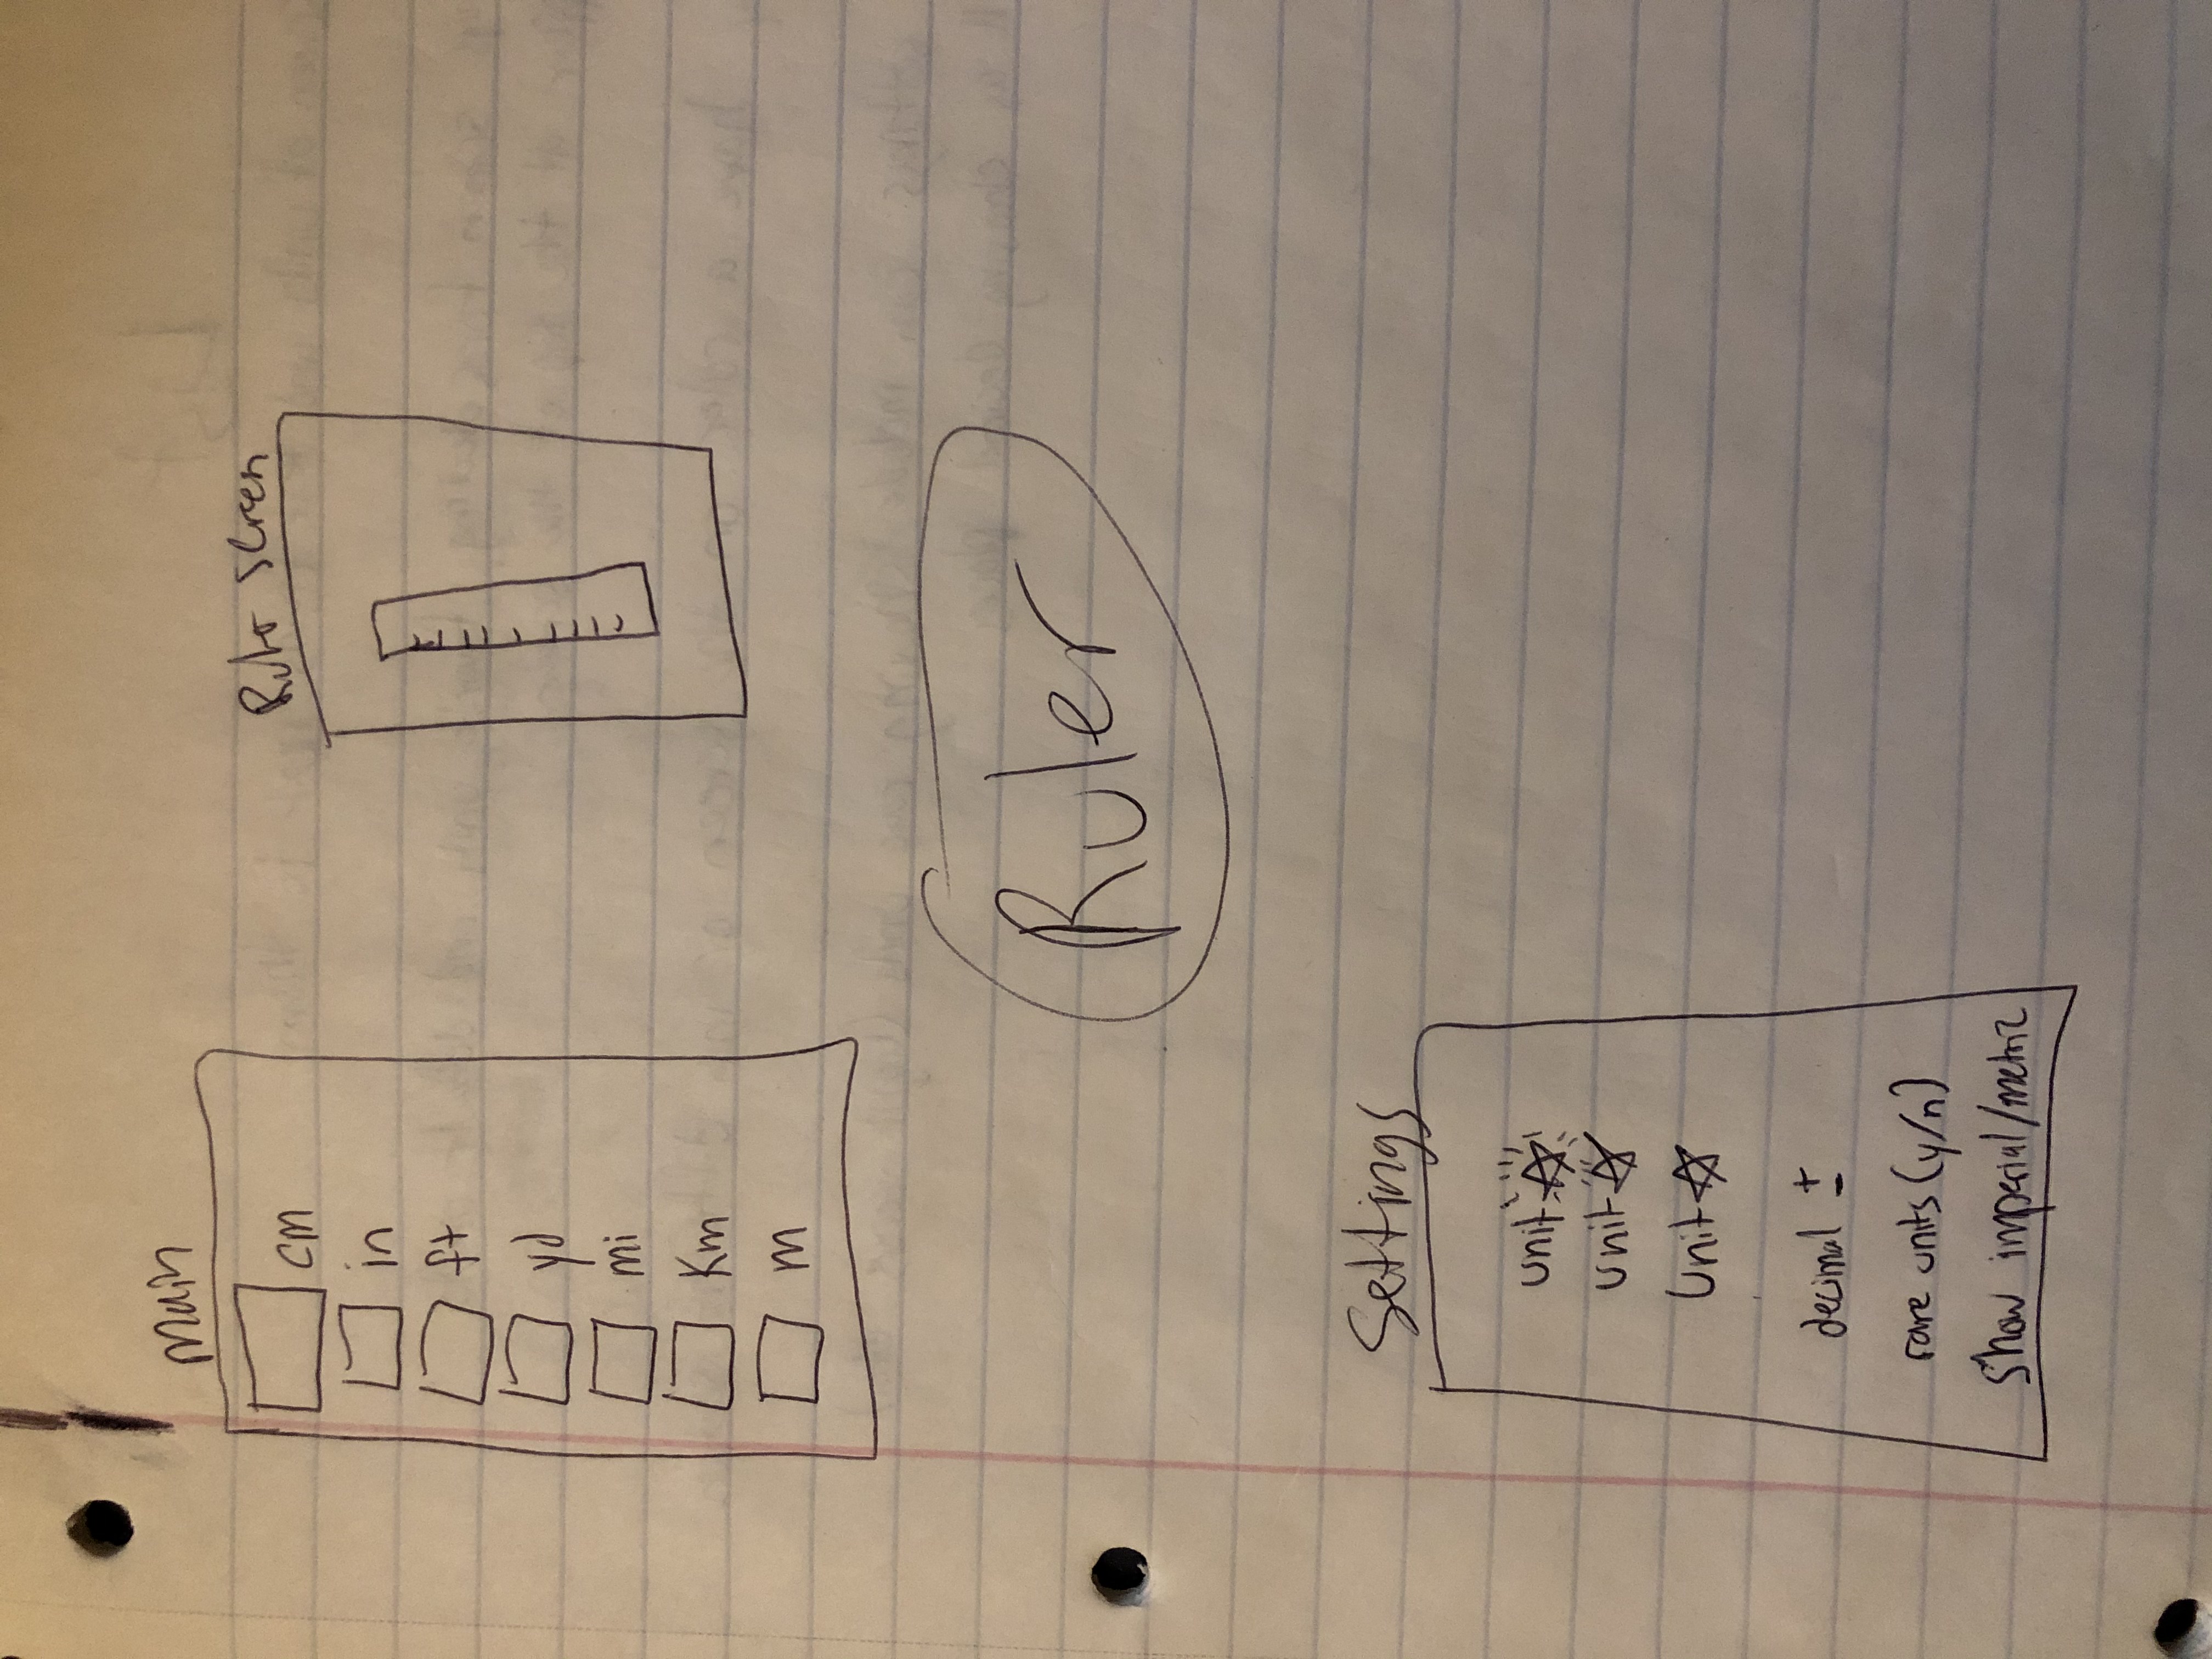 Main
cm
in
ft
yd
mi
Km
m
Ruler screen
Ruler
Settings
unit
unit
Unit
decimal +
-
rare units (y/n)
Show imperial/metric